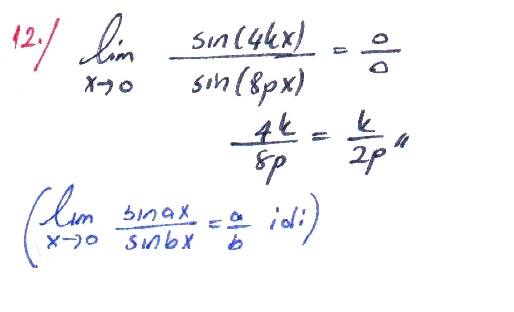 12./ lim x→0 sin(4kx) / sin(8px) = 0/0
4k/8p = k/2p //
(lim x→0 sinax / sinbx = a/b idi)